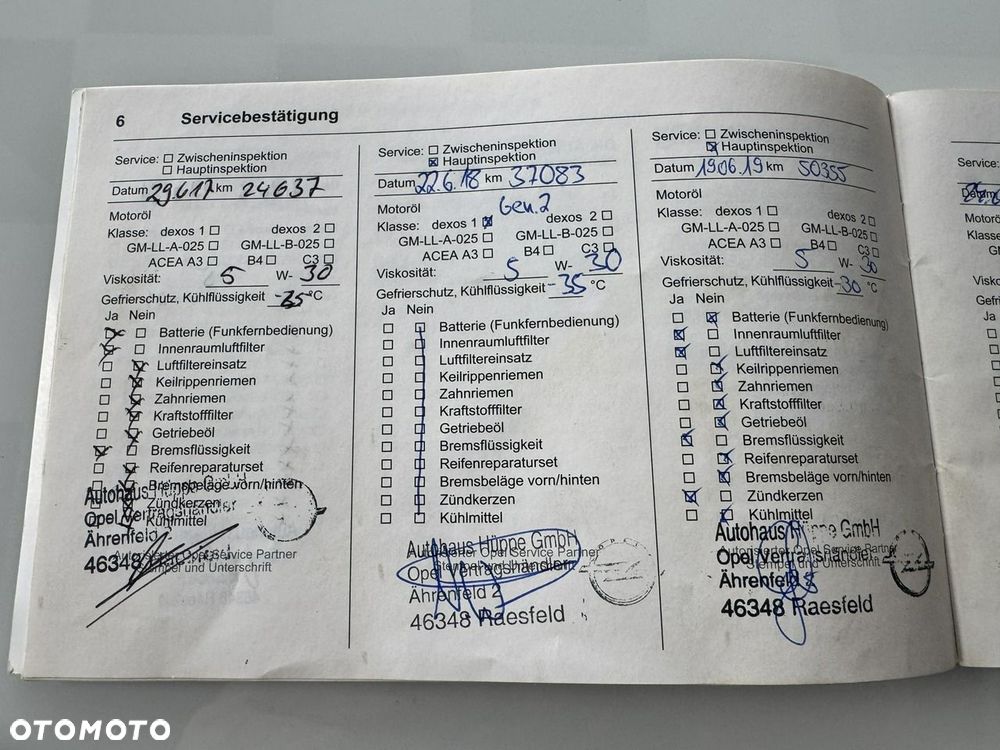 6 Servicebestätigung
Service: Zwischeninspektion
Hauptinspektion
Datum 29.6.17 km 24637
Motoröl
Klasse: dexos 1 dexos 2
GM-LL-A-025 GM-LL-B-025
ACEA A3 B4 C3
Viskosität: 5 W- 30
Gefrierschutz, Kühlflüssigkeit -35 °C
Ja Nein
Batterie (Funkfernbedienung)
Innenraumluftfilter
Luftfiltereinsatz
Keilrippenriemen
Zahnriemen
Kraftstofffilter
Getriebeöl
Bremsflüssigkeit
Reifenreparaturset
Bremsbeläge vorn/hinten
Zündkerzen
Kühlmittel
Autohaus Hüppe GmbH
Opel Vertragshändler
Ährenfeld 2
46348
Autorisierter Opel Service Partner
Stempel und Unterschrift
Service: Zwischeninspektion
Hauptinspektion
Datum 22.6.18 km 37083
Motoröl Gen.2
Klasse: dexos 1 dexos 2
GM-LL-A-025 GM-LL-B-025
ACEA A3 B4 C3
Viskosität: 5 W- 30
Gefrierschutz, Kühlflüssigkeit -35 °C
Ja Nein
Batterie (Funkfernbedienung)
Innenraumluftfilter
Luftfiltereinsatz
Keilrippenriemen
Zahnriemen
Kraftstofffilter
Getriebeöl
Bremsflüssigkeit
Reifenreparaturset
Bremsbeläge vorn/hinten
Zündkerzen
Kühlmittel
Autohaus Hüppe GmbH
Autorisierter Opel Service Partner
Stempel und Unterschrift
Opel Vertragshändler
Ährenfeld 2
46348 Raesfeld
Service: Zwischeninspektion
Hauptinspektion
Datum 19.06.19 km 50355
Motoröl
Klasse: dexos 1 dexos 2
GM-LL-A-025 GM-LL-B-025
ACEA A3 B4 C3
Viskosität: 5 W- 30
Gefrierschutz, Kühlflüssigkeit -30 °C
Ja Nein
Batterie (Funkfernbedienung)
Innenraumluftfilter
Luftfiltereinsatz
Keilrippenriemen
Zahnriemen
Kraftstofffilter
Getriebeöl
Bremsflüssigkeit
Reifenreparaturset
Bremsbeläge vorn/hinten
Zündkerzen
Kühlmittel
Autohaus Hüppe GmbH
Autorisierter Opel Service Partner
Opel Vertragshändler
Stempel und Unterschrift
Ährenfeld 2
46348 Raesfeld
Service:
Datum
Klasse
OTOMOTO